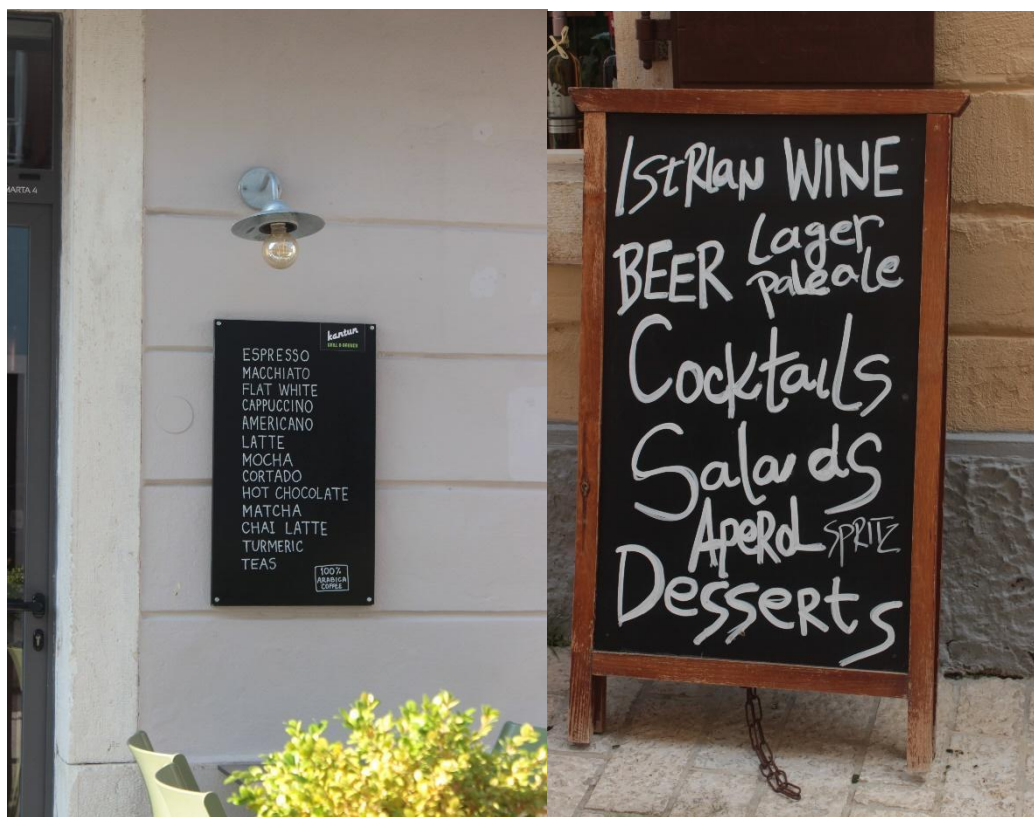 MARTA 4
kantun
GRILL & GARDEN
ESPRESSO
MACCHIATO
FLAT WHITE
CAPPUCCINO
AMERICANO
LATTE
MOCHA
CORTADO
HOT CHOCOLATE
MATCHA
CHAI LATTE
TURMERIC
TEAS
100%
ARABICA
COFFEE
IstRIaN WINE
BEER Lager
pale ale
Cocktails
Salads
ApeRoL SPRITZ
Desserts